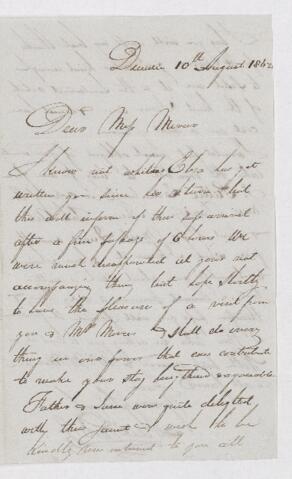 10th August 1842
Dear Miss
I know not whether Eliza has yet
written you since her return but
this will inform of their safe arrival
after a fine passage of 6 hours We
were much disappointed at your not
accompanying them but hope shortly
to have the pleasure of a visit from
you & Mrs & shall do every
thing in our power that can contribute
to make your stay agreeable
Father & were quite delighted
with their jaunt & wish to be
kindly remembered to you all